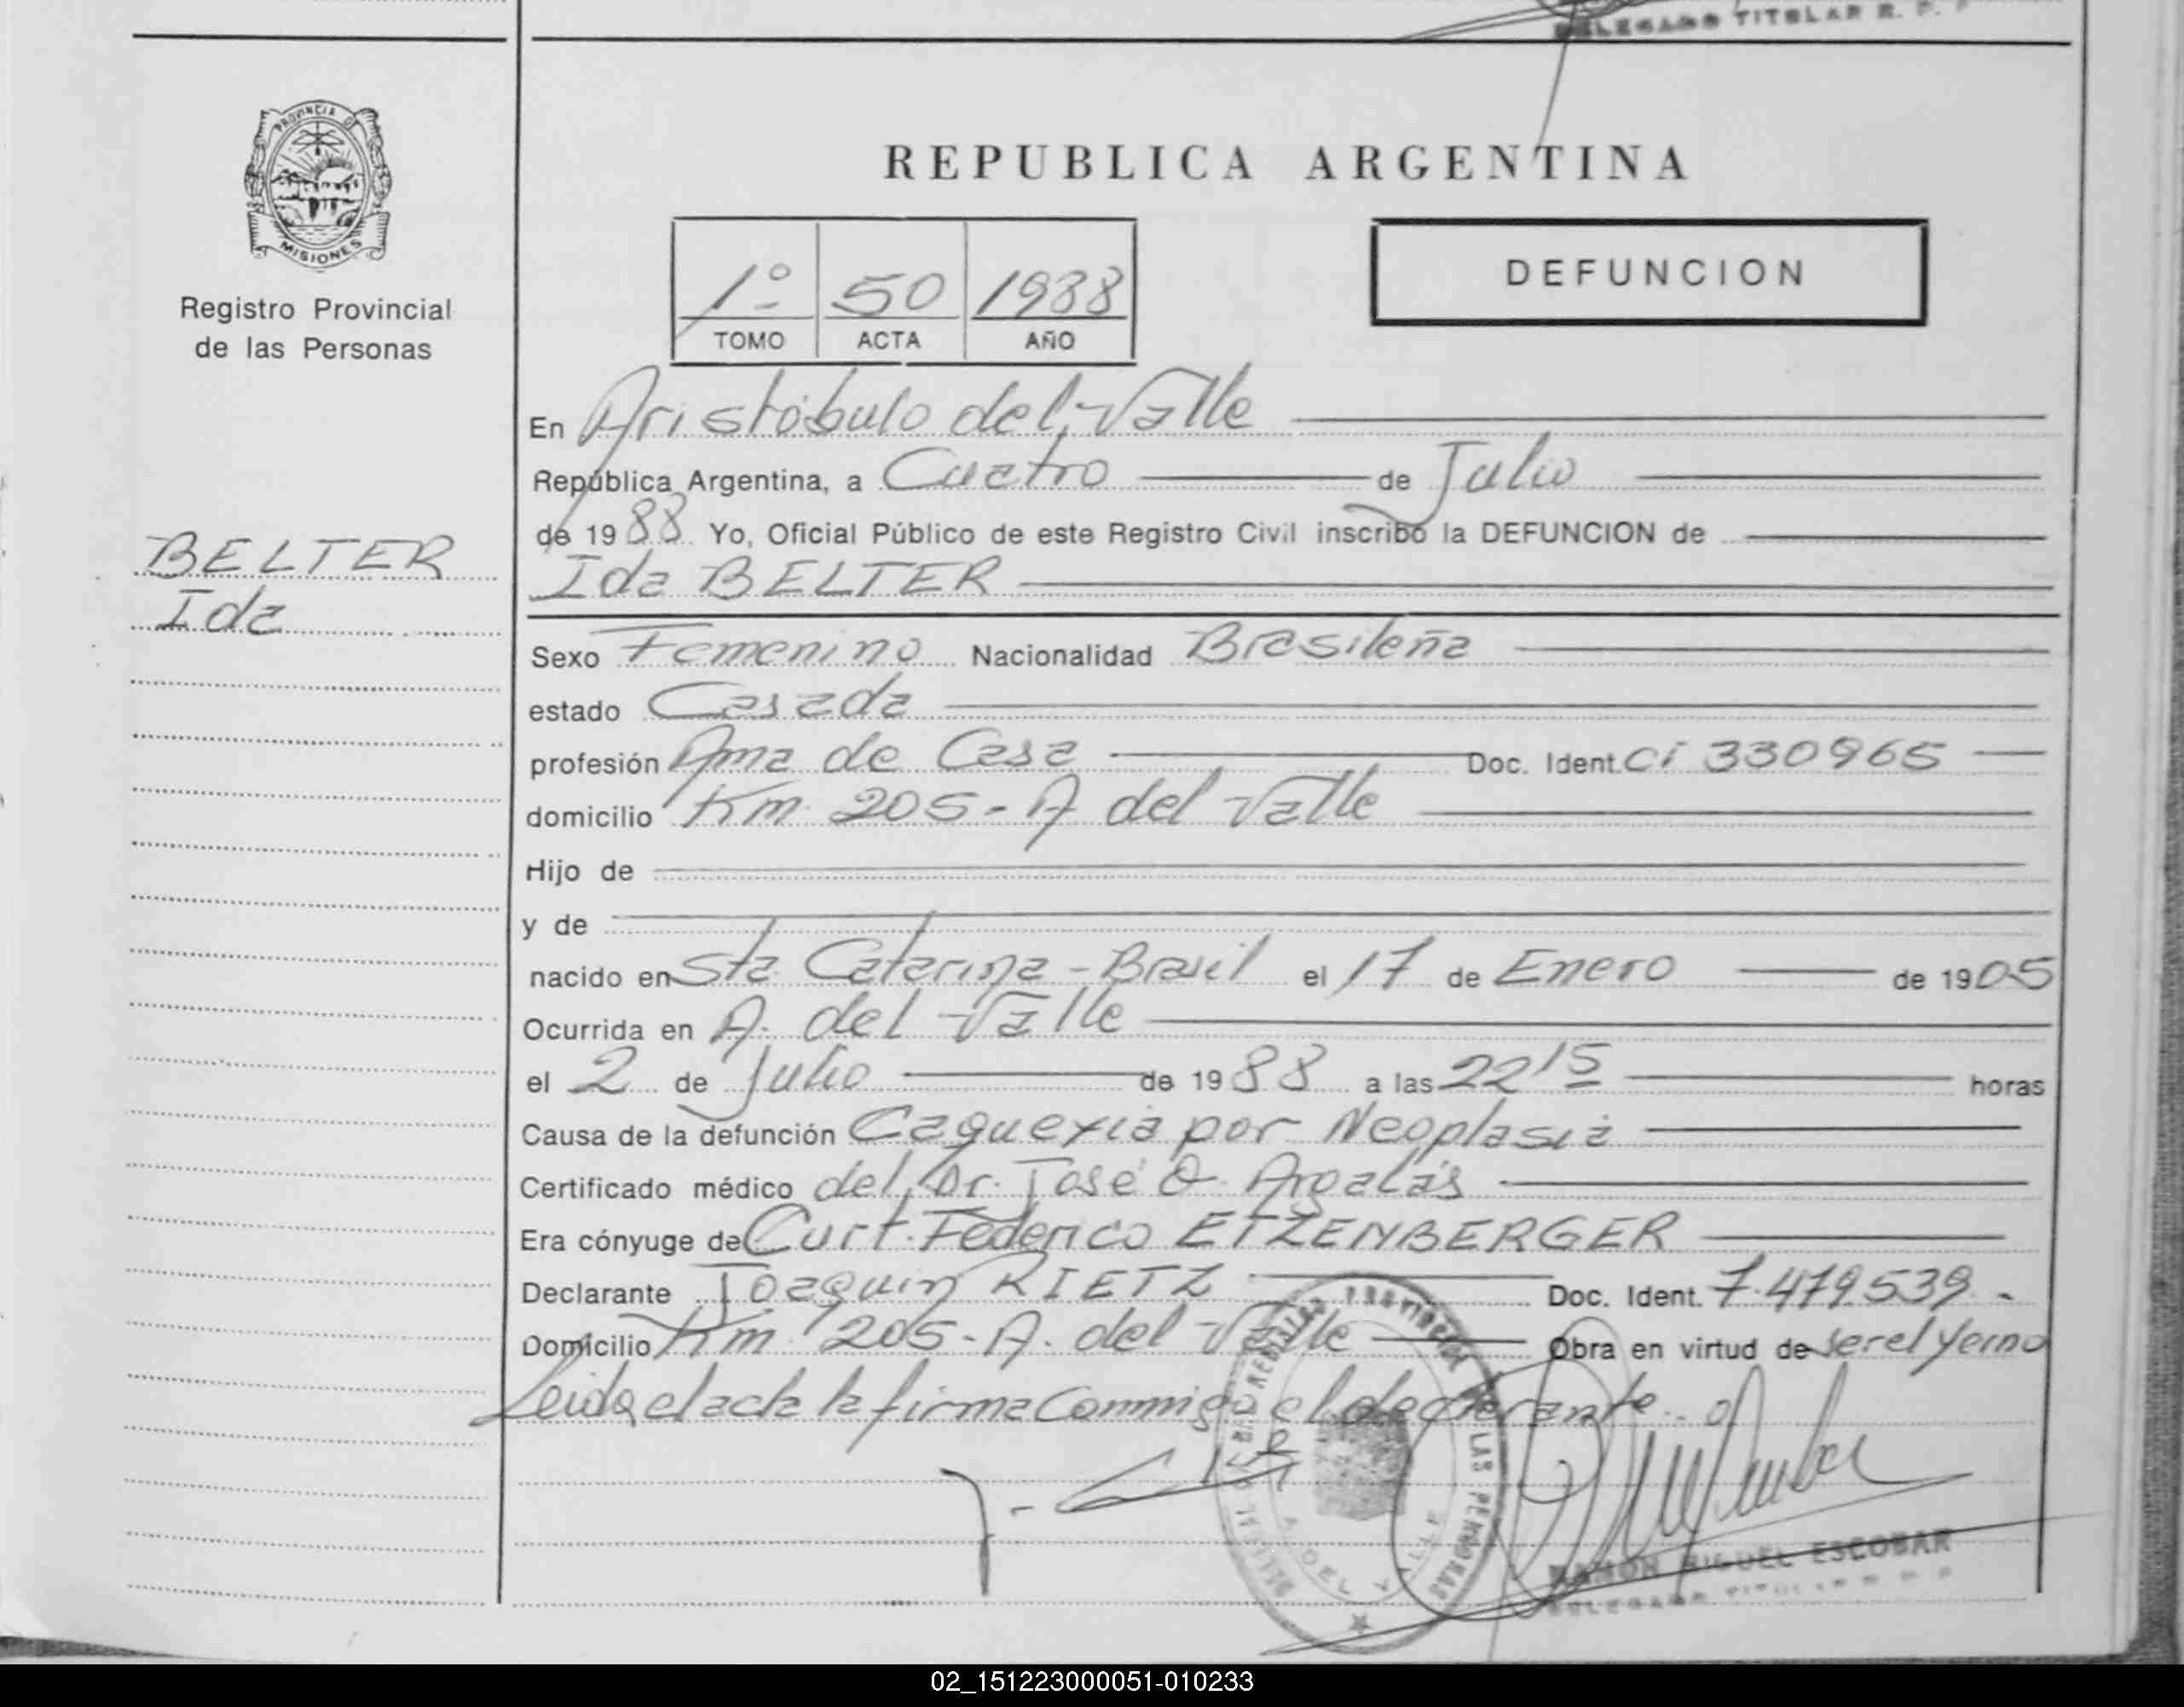 DELEGADO TITULAR R. P. P
PROVINCIA D
MISIONES
Registro Provincial
de las Personas
REPUBLICA ARGENTINA
1º 50 1988
TOMO ACTA AÑO
DEFUNCION
En Aristóbulo del Valle
República Argentina, a Cuatro de Julio
de 1988 Yo, Oficial Público de este Registro Civil inscribo la DEFUNCION de
BELTER
Ida
Ida BELTER
Sexo Femenino Nacionalidad Brasileña
estado Casada
profesión Ama de Casa Doc. Ident. Ci 330965
domicilio Km 205 - A del Valle
Hijo de
y de
nacido en Sta Catarina - Brasil el 17 de Enero de 1905
Ocurrida en A. del Valle
el 2 de Julio de 1988 a las 22 15 horas
Causa de la defunción Caquexia por Neoplasia
Certificado médico del Dr. José O. Argalás
Era cónyuge de Curt Federico ETZENBERGER
Declarante Joaquin RIETZ Doc. Ident. 7.479.539.-
Domicilio Km 205 - A. del Valle Obra en virtud de ser el yerno
Leida el acta la firma Conmigo el declarante
REGISTRO PROVINCIAL DE LAS PERSONAS
A. DEL VALLE
RAMON MIGUEL ESCOBAR
DELEGADO TITULAR R. P. P
02_151223000051-010233